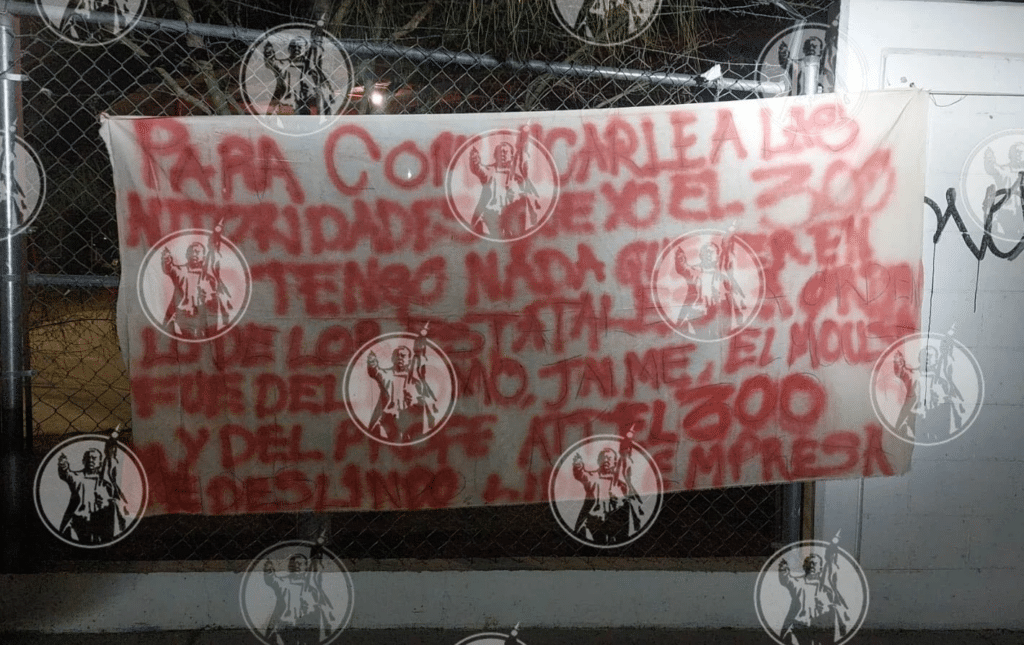 PARA COMUNICARLE A LAS
AUTORIDADES QUE YO EL 300
TENGO NADA QUE VER EN
LO DE LOS ESTATALES LA ONDEA
FUE DEL JAIME, EL MOUST
Y DEL PROFE ATT EL 300
ME DESLINDO EMPRESA